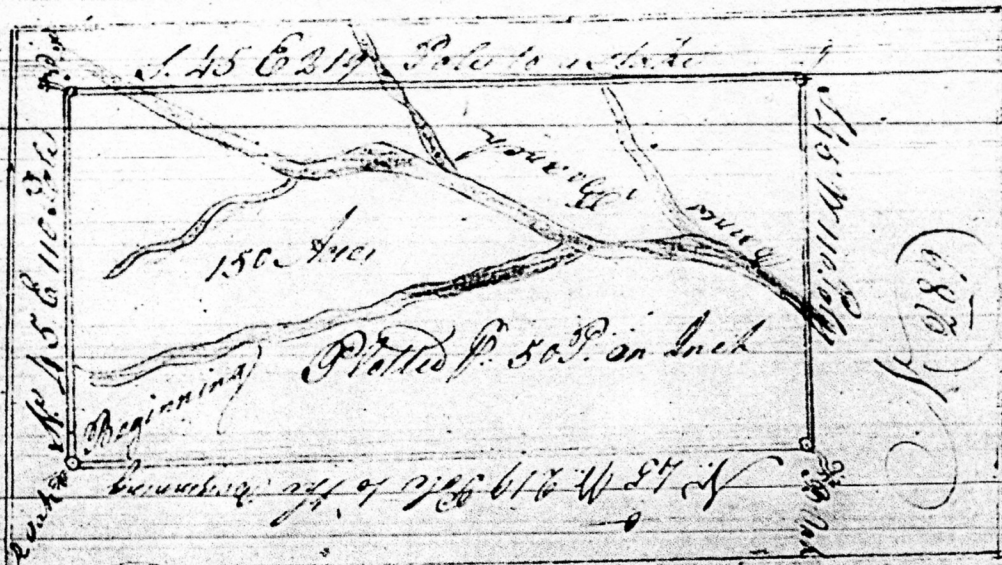 S. 45 E 219 Poles to a stake
No. 45 E 110 Pols
S 45 W 110 Pols
Branch
150 Acres
Plotted P. 50 P. an Inch
Beginning
N. 45 W. 219 Pole to the Beginning
2 oaks